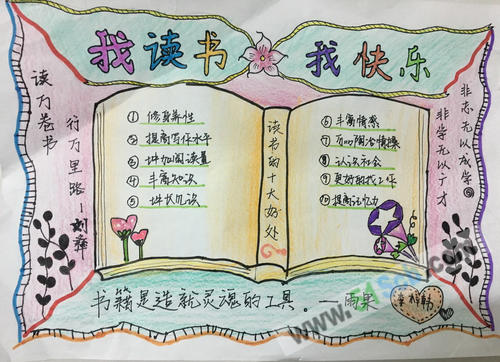 我读书
我快乐
读万卷书
行万里路—刘彝
① 修身养性
② 提高写作水平
③ 增加阅读量
④ 丰富知识
⑤ 增长见识
读书的十大好处
⑥ 丰富情感
⑦ 可以陶冶情操
⑧ 认识社会
⑨ 更好的找工作
⑩ 提高记忆力
非志无以成学
非学无以广才
书籍是造就灵魂的工具。—雨果